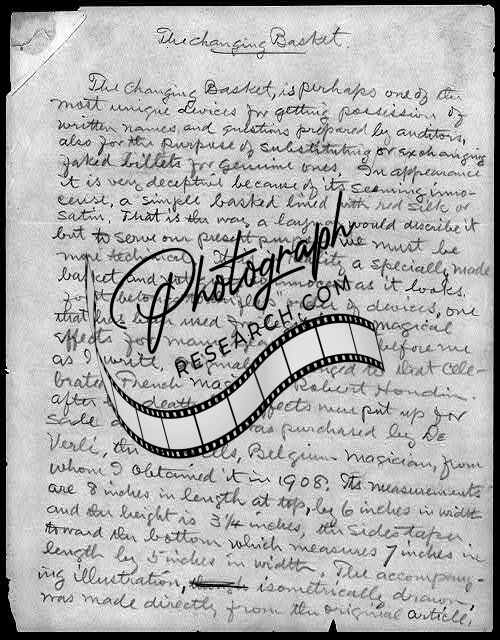 The Changing Basket.
The Changing Basket, is perhaps one of the
most unique devices for getting possession of
written names, and questions prepared by auditors,
also for the purpose of substituting or exchanging
faked billets for genuine ones. In appearance
it is very deceptive because of its seeming inno-
cense, a simple basked lined with red silk or
satin. That is the way a layman would discribe it
but to serve our present purpose we must be
more technical. a specially made
basket and not as it looks.
of devices, one
that has been used magical
effects for many before me
as I write, that cele-
brated French Robert Houdin.
after death effects were put up for
sale was purchased by De
Verli, the Belgium magician, from
whom I obtained it in 1908. Its measurements
are 8 inches in length at top, by 6 inches in width
and the height is 3 1/4 inches, the sides taper
toward the bottom which measures 7 inches in
length by 5 inches in width. The accompany-
ing illustration, isometrically drawn,
was made directly from the original article,
Photograph
RESEARCH.COM